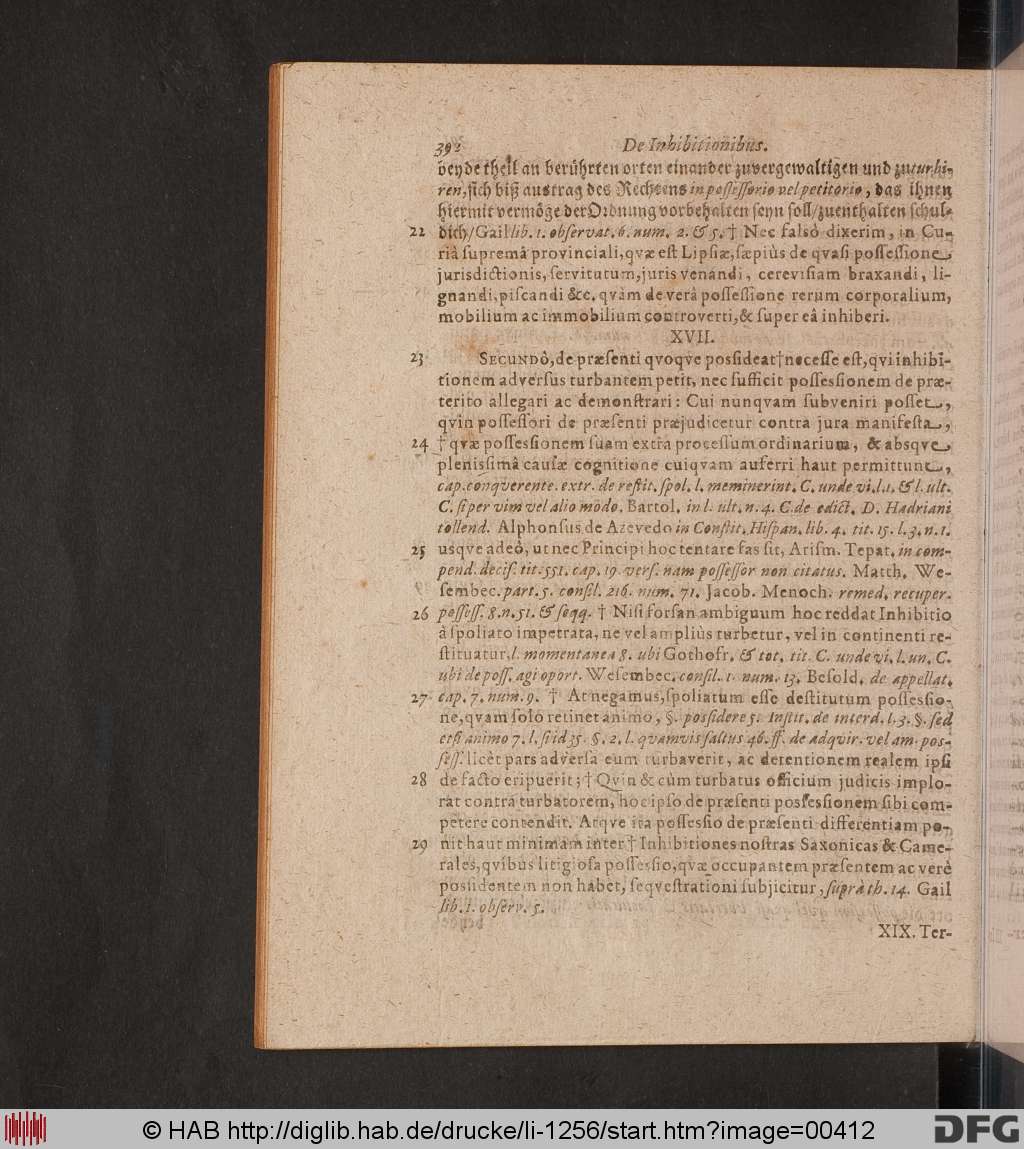 392 De Inhibitionibus.
beyde theil an berührten orten einander zuvergewaltigen und zuturbi-
ren, sich biß austrag des Rechtens in possessorio vel petitorio, das ihnen
hiermit vermöge der Ordnung vorbehalten seyn soll/zuenthalten schul-
22 dich/Gail lib. 1. observat. 6. num. 2. & 5. † Nec falsò dixerim, in Cu-
riâ supremâ provinciali, qvæ est Lipsiæ, sæpiùs de qvasi possessione,
jurisdictionis, servitutum, juris venandi, cerevisiam braxandi, li-
gnandi, piscandi &c. qvàm de verâ possessione rerum corporalium,
mobilium ac immobilium controverti, & super eâ inhiberi.
XVII.
23 SECUNDÒ, de præsenti qvoqve possideat † necesse est, qvi inhibi-
tionem adversus turbantem petit, nec sufficit possessionem de præ-
terito allegari ac demonstrari: Cui nunqvam subveniri posset,
qvin possessori de præsenti præjudicetur contra jura manifesta,
24 † qvæ possessionem suam extra processum ordinarium, & absqve
plenissimâ causæ cognitione cuiqvam auferri haut permittunt,
cap. conqverente. extr. de restit. spol. l. meminerint. C. unde vi. l. 1. & l. ult.
C. si per vim vel alio modo. Bartol. in l. ult. n. 4. C. de edict. D. Hadriani
tollend. Alphonsus de Azevedo in Constit. Hispan. lib. 4. tit. 15. l. 3. n. 1.
25 usqve adeò, ut nec Principi hoc tentare fas sit, Arism. Tepat. in com-
pend. decis. tit. 551. cap. 19. vers. nam possessor non citatus. Matth. We-
sembec. part. 5. consil. 216. num. 71. Jacob. Menoch. remed. recuper.
26 possess. 8. n. 51. & seqq. † Nisi forsan ambiguum hoc reddat Inhibitio
à spoliato impetrata, ne vel ampliùs turbetur, vel in continenti re-
stituatur, l. momentanea 8. ubi Gothofr. & tot. tit. C. unde vi. l. un. C.
ubi de poss. agi oport. Wesembec. consil. 1. num. 13. Besold. de appellat.
27 cap. 7. num. 9. † At negamus, spoliatum esse destitutum possessio-
ne, qvam solò retinet animo, §. possidere 5. Instit. de interd. l. 3. §. sed
etsi animo 7. l. si id 35. §. 2. l. quamvis saltus 46. ff. de adqvir. vel am. pos-
sess. licèt pars adversa eum turbaverit, ac detentionem realem ipsi
28 de facto eripuerit; † Qvin & cùm turbatus officium judicis implo-
rat contra turbatorem, hoc ipso de præsenti possessionem sibi com-
petere contendit. Atqve ita possessio de præsenti differentiam po-
29 nit haut minimam inter † Inhibitiones nostras Saxonicas & Came-
rales, qvibus litigiosa possessio, qvæ occupantem præsentem ac verè
possidentem non habet, seqvestrationi subjicitur, suprà th. 14. Gail
lib. 1. observ. 5.
XIX. Ter-
© HAB http://diglib.hab.de/drucke/li-1256/start.htm?image=00412
DFG